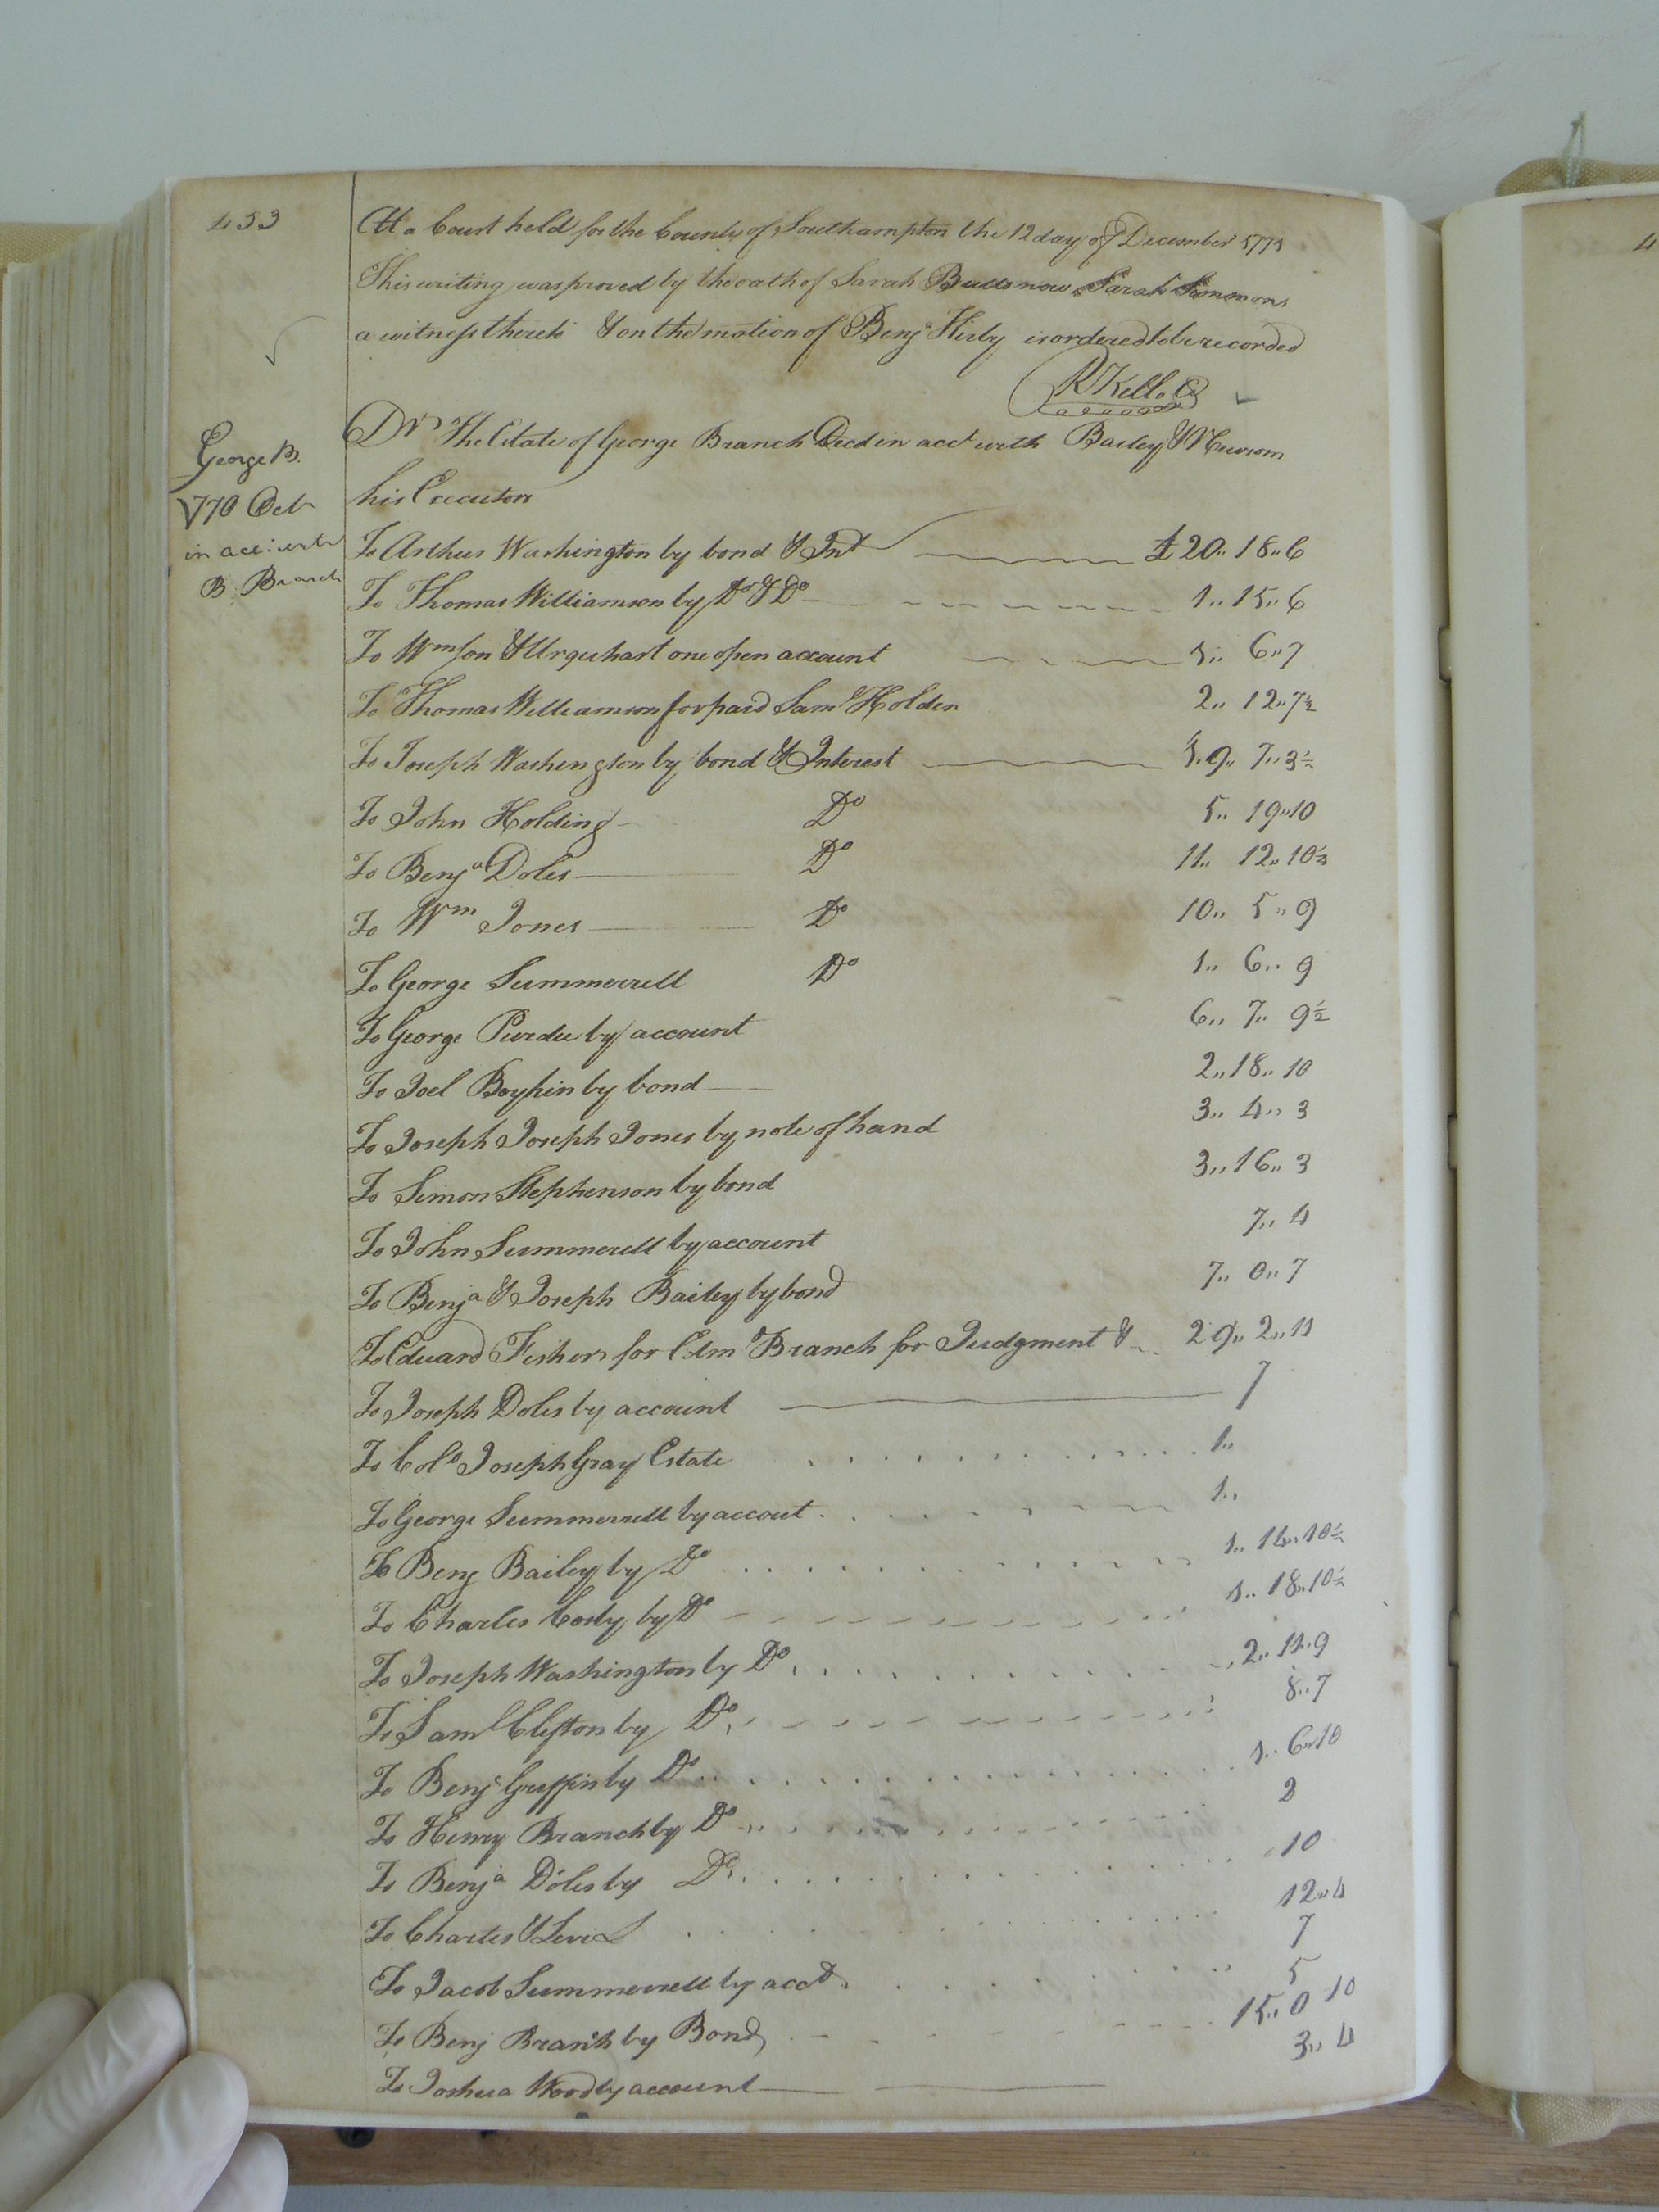 453
At a Court held for the County of Southampton the 12 day of December 1771
This writing was proved by the oath of Sarah now Sarah Simmons
a witness thereto & on the motion of Benja Kirby is ordered to be recorded
RKello C
George B.
1770 Octr
in acc: with
B. Branch
Dr The Estate of George Branch Decd in acct with Bailey & Newsom
his Executors
To Arthur Washington by bond & Int £20,, 18,, 6
To Thomas Williamson by Do & Do 1,, 15,, 6
To Wmson & Urquhart one open account 1,, 6,, 7
To Thomas Williamson for paid Saml Holden 2,, 12,, 7½
To Joseph Washington by bond & Interest 19,, 7,, 3½
To John Holding Do 5,, 19,, 10
To Benja Doles Do 11,, 12,, 10½
To Wm Jones Do 10,, 5,, 9
To George Summerrell Do 1,, 6,, 9
To George Purdie by account 6,, 7,, 9½
To Joel Boykin by bond 2,, 18,, 10
To Joseph Joseph Jones by note of hand 3,, 4,, 3
To Simon Stephenson by bond 3,, 16,, 3
To John Summerell by account 7,, 4
To Benja & Joseph Bailey by bond 7,, 0,, 7
To Edward Fishers for Branch for Judgment & 29,, 2,, 11
To Joseph Doles by account 7
To Colo Joseph Gray Estate 1,,
To George Summerrell by accout 1,,
To Benj Bailey by Do 1,, 14,, 10½
To Charles Cosby by Do 1,, 18,, 10½
To Joseph Washington by Do 2,, 11,, 9
To Saml Clifton by Do 8,, 7
To Benja Griffin by Do 1,, 6,, 10
To Henry Branch by Do 2
To Benja Doles by Do 10
To Charles & Levi 12,, 4
7
To Jacob Summerrell by acct 5
To Benj Branch by Bond 15,, 0 10
To Joshua Wood by account 3,, 4